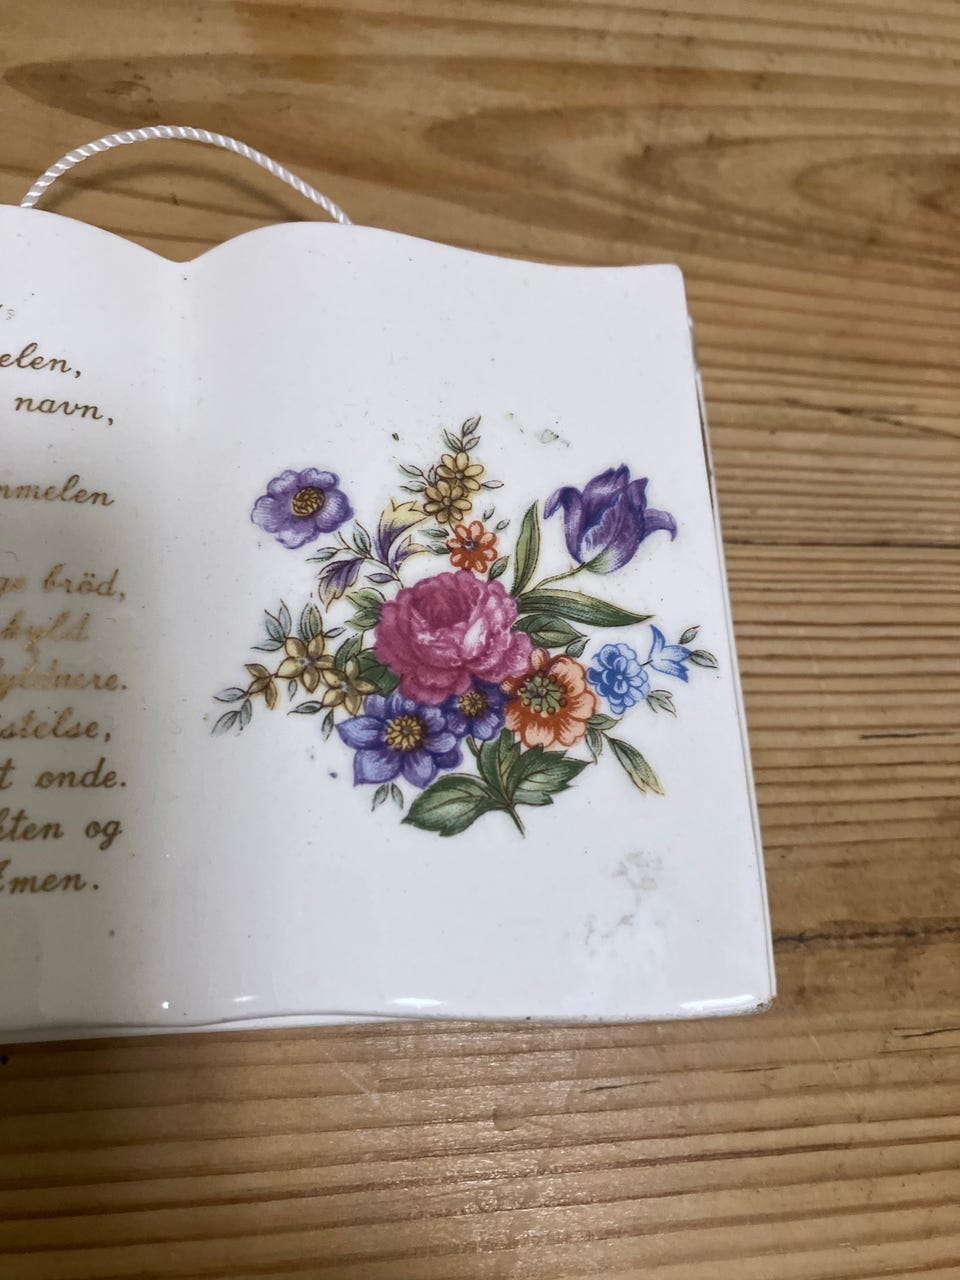 elen,
navn,
mmelen
ge bröd,
kyld
yldnere.
stelse,
t onde.
kten og
Amen.